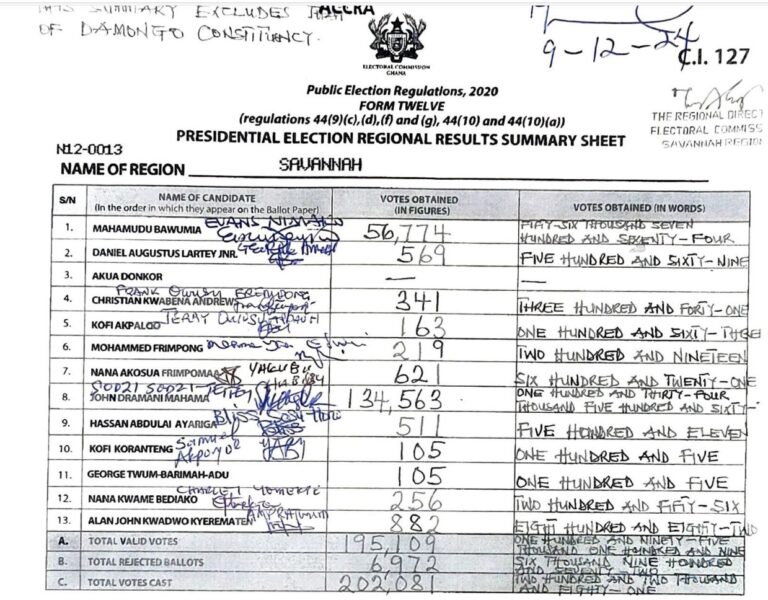 THIS SUMMARY EXCLUDES THAT
OF DAMONGO CONSTITUENCY.
ACCRA
ELECTORAL COMMISSION
GHANA
9-12-24
C.I. 127
Public Election Regulations, 2020
FORM TWELVE
(regulations 44(9)(c),(d),(f) and (g), 44(10) and 44(10)(a))
PRESIDENTIAL ELECTION REGIONAL RESULTS SUMMARY SHEET
THE REGIONAL DIRECT
ELECTORAL COMMISS
SAVANNAH REGION
N12-0013
NAME OF REGION SAVANNAH
S/N NAME OF CANDIDATE (In the order in which they appear on the Ballot Paper) VOTES OBTAINED (IN FIGURES) VOTES OBTAINED (IN WORDS)
1. MAHAMUDU BAWUMIA EVANS NIMAKO 56,774 FIFTY-SIX THOUSAND SEVEN HUNDRED AND SEVENTY-FOUR
2. DANIEL AUGUSTUS LARTEY JNR. 569 FIVE HUNDRED AND SIXTY-NINE
3. AKUA DONKOR — —
4. CHRISTIAN KWABENA ANDREWS FRANK OWUSU 341 THREE HUNDRED AND FORTY-ONE
5. KOFI AKPALOO 163 ONE HUNDRED AND SIXTY-THREE
6. MOHAMMED FRIMPONG 219 TWO HUNDRED AND NINETEEN
7. NANA AKOSUA FRIMPOMAA YAKUBU 621 SIX HUNDRED AND TWENTY-ONE
8. JOHN DRAMANI MAHAMA 134,563 ONE HUNDRED AND THIRTY-FOUR THOUSAND FIVE HUNDRED AND SIXTY-
9. HASSAN ABDULAI AYARIGA 511 FIVE HUNDRED AND ELEVEN
10. KOFI KORANTENG Samuel 105 ONE HUNDRED AND FIVE
11. GEORGE TWUM-BARIMAH-ADU 105 ONE HUNDRED AND FIVE
12. NANA KWAME BEDIAKO 256 TWO HUNDRED AND FIFTY-SIX
13. ALAN JOHN KWADWO KYEREMATEN 882 EIGHT HUNDRED AND EIGHTY-TWO
A. TOTAL VALID VOTES 195,109 ONE HUNDRED AND NINETY-FIVE THOUSAND ONE HUNDRED AND NINE
B. TOTAL REJECTED BALLOTS 6,972 SIX THOUSAND NINE HUNDRED AND SEVENTY-TWO
C. TOTAL VOTES CAST 202,081 TWO HUNDRED AND TWO THOUSAND AND EIGHTY-ONE